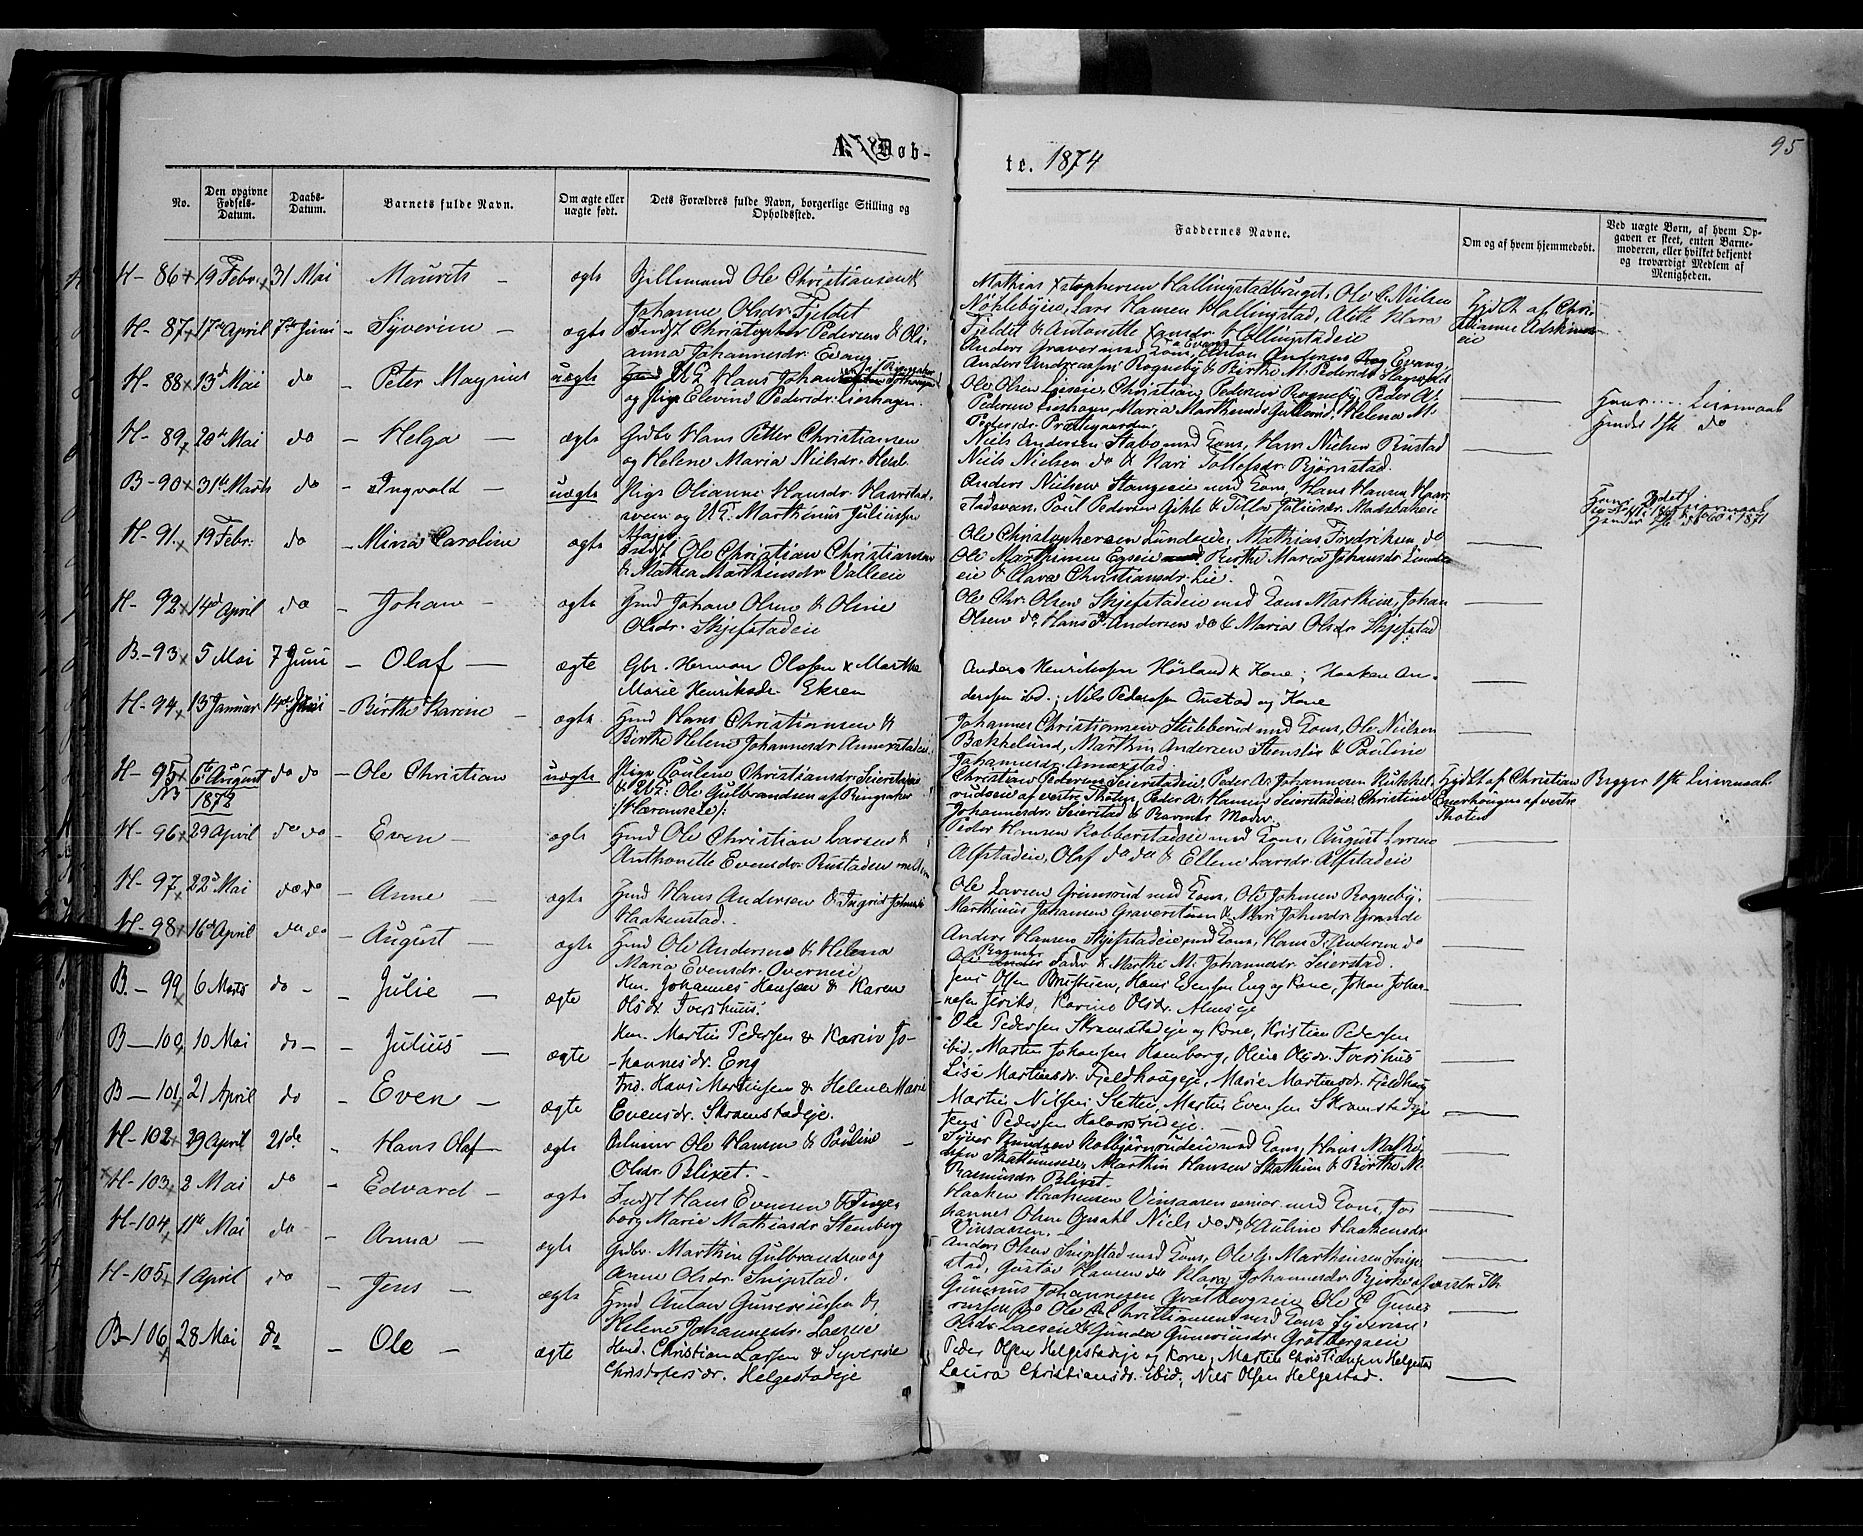 A. Døb-
te. 1874
95
No.
Den opgivne Fødsels-Datum.
Daabs-Datum.
Barnets fulde Navn.
Om ægte eller uægte født.
Dets Forældres fulde Navn, borgerlige Stilling og Opholdssted.
Faddernes Navne.
Om og af hvem hjemmedøbt.
Ved uægte Børn, af hvem Opgaven er skeet, enten Barnemoderen, eller hvilket bekjendt og troværdigt Medlem af Menigheden.
H- 86 19 Febr. 31 Mai Maurits - ægte Ole Christiansen &
Johanne Olsdr. Fjeldet
Mathias Xstophersen Hallingstadbruget, Ole C. Nielsen
Lars Hansen Hallingstad, Alette Klara
Fjeldet & Antonette Hallingstadeie
H- 87 17de April 7de Juni - Syverin - ægte Indst Christopher Pedersen & Oli-
anna Johannesdr. Evang
Anders med Kone, Anton Andersen Evang,
Anders Andreassen Rogneby & Birthe M. Pedersdr
H- 88 13de Mai do - Peter Magnus uægte UK Hans Johan
og Pige Elevine Pedersdr. Lishagen.
Ole Olsen Christian Pedersen Rogneby, Peder A.
Pedersen Lishagen, Maria Marthinusd Helena M.
Pedersdr. Præstegaarden
Hans Leiermaal
Hendes 1ste do
H- 89 20de Mai do - Helga - ægte Grdbr Hans Petter Christiansen
og Helene Maria Nielsdr.
Niels Andersen Stabo med Kone, Hans Nielsen Rustad
Niels Nielsen do & Kari Tollefsdr. Bjørnstad.
B- 90 31te Marts do - Ingvald - uægte Pige Olianne Hansdr. Haarstad-
sveen og UK: Marthinus Juliussen
Anders Nielsen Stangeeie med Kone, Hans Hansen Haar-
stadsveen, Poul Pedersen & Juliusdr. Madsbakeie
H- 91 19 Febr. do - Mina Caroline ægte Indst Ole Christian Christiansen
& Mathea Marthinsdr Valleeie
Ole Christophersen Lundeeie, Mathias Fredriksen do
Ole Marthinsen Egeeie Birthe Maria Johansdr. Lunde-
eie & Clara Christiansdr. Lie.
H- 92 14de April do - Johan - ægte Hmd Johan Olsen & Oline
Olsdr. Skjefstadeie
Ole Chr. Olsen Skjefstadeie med Kone Marthin, Johan
Olsen do, Hans P. Andersen do & Maria Olsdr. Skjefstad
B.-93 5 Mai 7 Juni - Olaf - ægte Gbr. Herman Olafsen & Marthe
Marie Henriksdr. Ekren
Anders Henriksen Hørland & Kone; Haaken An-
dersen ibd.; Nils Pedersen Austad og Kone
H- 94 13 Januar 14de Juni - Birthe Karine - ægte Hmd Hans Christiansen &
Birthe Helene Johannesdr. Annerstadeie
Johannes Christiansen Stubberud med Kone, Ole Nielsen
Bakkelund, Marthin Andersen Stenslie & Pauline
Johannesdr.
H- 95 6te August 1872 do do - Ole Christian uægte Pige Pauline Christiansdr. Seierstadeie
& UK: Ole Gulbrandsen af Ringsaker
Christian Pedersen Seierstadeie, Peder A. Johannesen
af vestre Thoten, Peder A. Hansen Seierstadeie, Christine
Johannesdr. Seierstad & Barnets Moder.
Hjdbt af Christian af vestre Thoten
Begges 1ste Leiermaal
H- 96 29 April do do - Even - ægte Hmd Ole Christian Larsen &
Anthonette Evensdr. Rustadeie
Peder Hansen Kobberstadeie med Kone, August Larsen
Alfstadeie, Olaf do do & Ellen Larsdr. Alfstadeie
H- 97 22de Mai do do - Anne - ægte Hmd Hans Andersen & Ingrid
Haakenstad.
Ole Larsen Grimsrud med Kone, Ole Johnsen Rogneby,
Marthinus Johansen & Mari Johnsdr. Grande
H- 98 16de April do do - August - ægte Hmd Ole Andersen & Helena
Maria Evensdr. Overneie
Anders Hansen Skjefstadeie med Kone, Hans T. Andersen do
& Marthe M. Johannesdr. Seierstad.
B.- 99 6 Marts do - - Julie - ægte Hm. Johannes Hansen & Karen
Olsdr. Tverhuus.
Jens Olsen Hans Evensen Eng og Kone, Johan Johan-
nesen Jeriko, Karine Olsdr.
B- 100 10 Mai do - - Julius - ægte Hm. Martin Pedersen & Karin Jo-
hannesdr. Eng
Ole Pedersen Skramstadeje og Kone, Kristian Pedersen
ibid, Martin Johansen Hamborg, Oline Olsdr. Tverhus
B- 101 21 April do - Even - ægte Ind. Hans Mortensen & Helene Marie
Evensdr. Skramstadeje.
Lise Martinsdr. Fjeldhaugeje, Marie Martinsdr. Fjeldhaug
Martin Nilsen Sletten, Martin Evensen Skramstadeje
Jens Pedersen
H- 102 29 April 21de - Hans Olaf - ægte Ole Hansen & Pauline -
Olsdr. Blixet -
Syver Knudsen med Kone, Hans
Marthin Hansen & Birthe M.
Rasmusdr. Blixet.
H- 103 2 Mai do - Edvard - ægte Indst Hans Evensen & Inge-
borg Marie Mathiasdr. Stenberg
Haaken Haakensen Vinsaasen senior med Kone, Jo-
hannes Olsen Opsahl Niels do do, & Auline Haakensdr
Vinsaasen.
H- 104 11te Mai do - Anna - ægte Grdbr. Marthin Gulbrandsen og
Anne Olsdr. Snipstad.
Anders Olsen Snipstad med Kone, Ole G. Marthinsen Snip-
stad, Gustav Hansen do Klara Johannesdr. Bjerke af vestre Th
H- 105 1 April do - Jens - ægte Hmd Anton Guneriussen &
Helene Johannesdr. Laeseie
Gunerius Johannesen Grøtbergseie Ole C. Gune-
riussen do Ole A. Christiansen med Kone
Laeseie & Gunda Guneriusdr. Grøtbergseie
B- 106 28 Mai do - Ole - ægte Hmd. Christian Larsen & Syverine
Christofersdr. Helgestadeje
Peder Olsen Helgestadeje og Kone, Martin Christiansen Helgestad
Laura Christiansdr. ibid, Nils Olsen Helgestad.